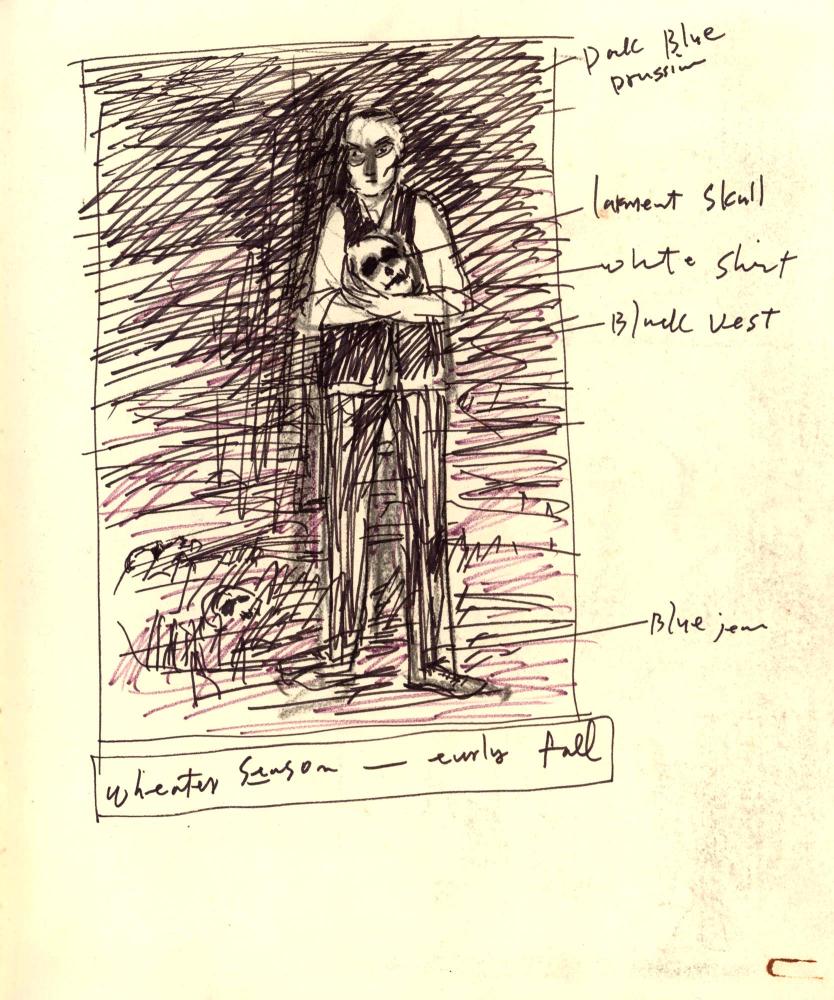 Dark Blue
prussian
lament skull
white shirt
Black vest
Blue jean
wheater season — early fall